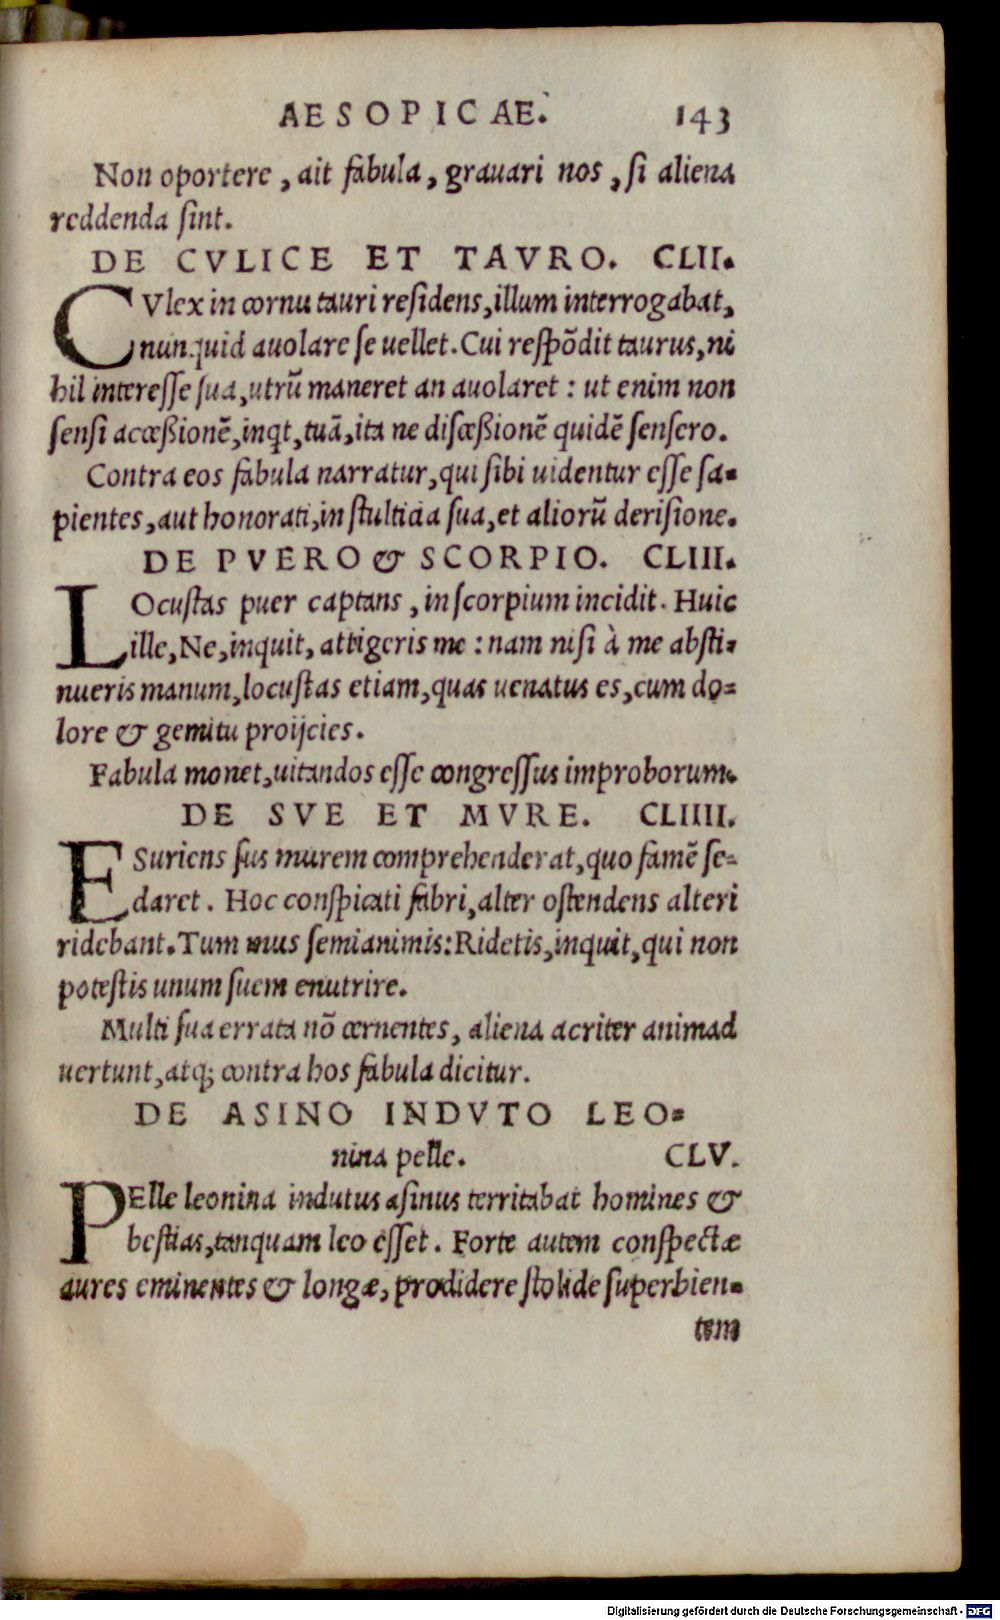 AESOPICAE. 143
Non oportere, ait fabula, grauari nos, si aliena
reddenda sint.
DE CVLICE ET TAVRO. CLII.
CVlex in cornu tauri residens, illum interrogabat,
nunquid auolare se uellet. Cui respõdit taurus, ni
hil interesse sua, utrũ maneret an auolaret: ut enim non
sensi acceßionẽ, inqt, tuã, ita ne disceßionẽ quidẽ sensero.
Contra eos fabula narratur, qui sibi uidentur esse sa-
pientes, aut honorati, in stulticia sua, et aliorũ derisione.
DE PVERO & SCORPIO. CLIII.
LOcustas puer captans, in scorpium incidit. Huic
ille, Ne, inquit, attigeris me: nam nisi à me absti-
nueris manum, locustas etiam, quas uenatus es, cum do-
lore & gemitu proijcies.
Fabula monet, uitandos esse congressus improborum.
DE SVE ET MVRE. CLIIII.
ESuriens sus murem comprehenderat, quo famẽ se-
daret. Hoc conspicati fabri, alter ostendens alteri
ridebant. Tum mus semianimis: Ridetis, inquit, qui non
potestis unum suem enutrire.
Multi sua errata nõ cernentes, aliena acriter animad
uertunt, atq; contra hos fabula dicitur.
DE ASINO INDVTO LEO-
nina pelle. CLV.
PElle leonina indutus asinus territabat homines &
bestias, tanquam leo esset. Forte autem conspectæ
aures eminentes & longæ, prodidere stolide superbien-
tem
Digitalisierung gefördert durch die Deutsche Forschungsgemeinschaft - DFG